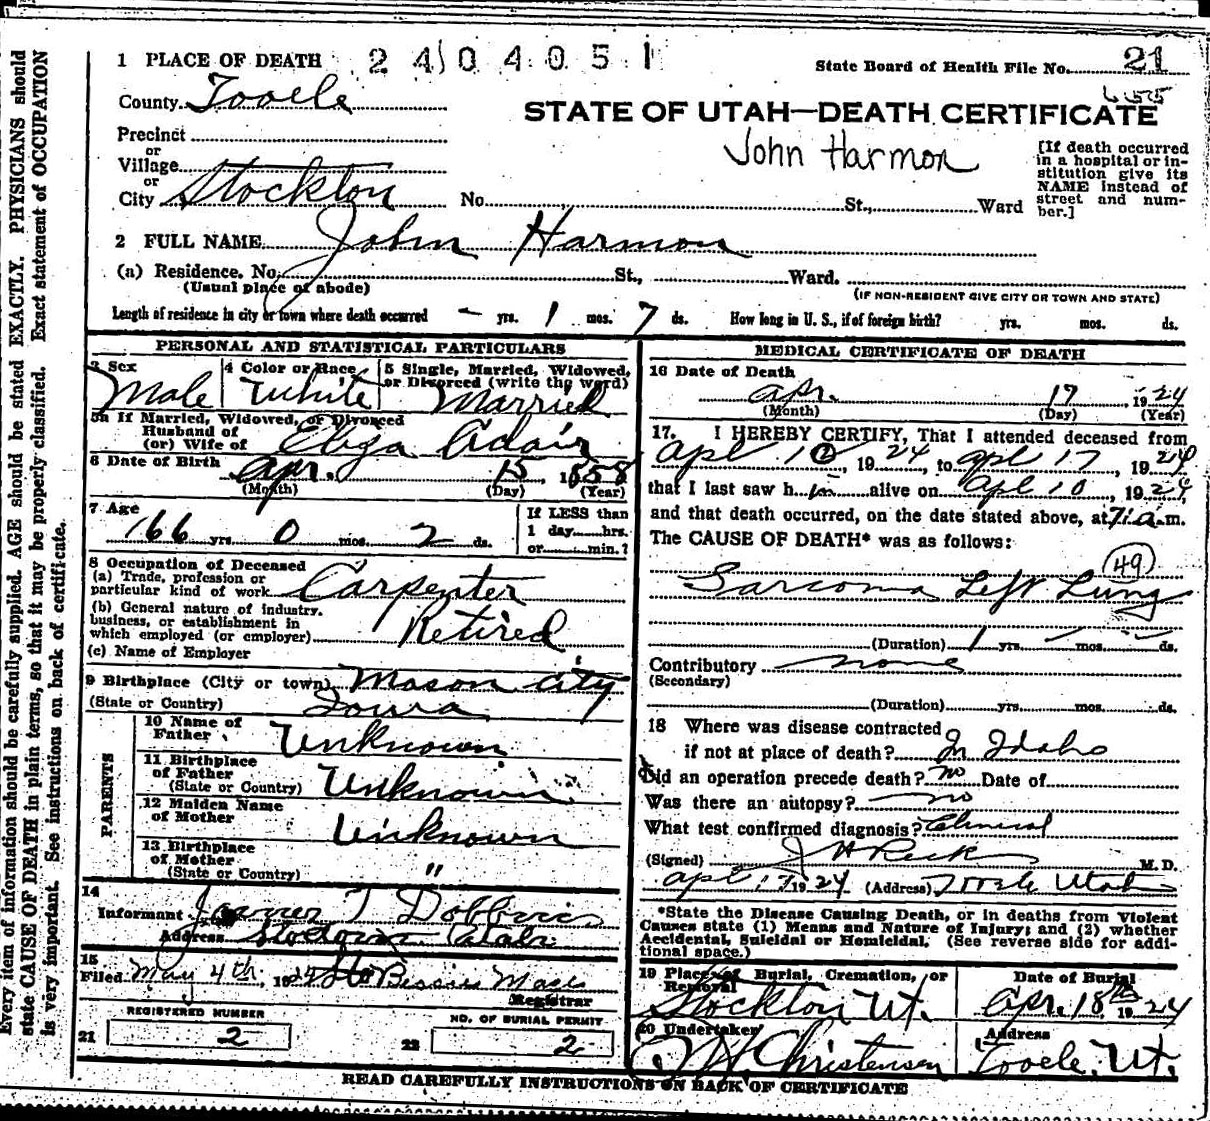 1 PLACE OF DEATH 2404051 State Board of Health File No. 21
County Tooele
655
STATE OF UTAH—DEATH CERTIFICATE
Precinct
or
Village
or
City Stockton No. St., Ward
John Harmon
[If death occurred
in a hospital or in-
stitution give its
NAME instead of
street and num-
ber.]
2 FULL NAME John Harmon
(a) Residence. No. St., Ward.
(Usual place of abode) (IF NON-RESIDENT GIVE CITY OR TOWN AND STATE)
Length of residence in city or town where death occurred — yrs. 1 mos. 7 ds. How long in U. S., if of foreign birth? yrs. mos. ds.
PERSONAL AND STATISTICAL PARTICULARS
3 Sex 4 Color or Race 5 Single, Married, Widowed,
or Divorced (write the word)
Male White Married
5a If Married, Widowed, or Divorced
Husband of
(or) Wife of Eliza Adair
6 Date of Birth Apr. 15, 1858
(Month) (Day) (Year)
7 Age If LESS than
66 yrs. 0 mos. 2 ds. 1 day hrs.
or min.?
8 Occupation of Deceased
(a) Trade, profession or
particular kind of work Carpenter
(b) General nature of industry.
business, or establishment in
which employed (or employer) Retired
(c) Name of Employer
9 Birthplace (City or town) Mason City
(State or Country) Iowa
PARENTS
10 Name of
Father Unknown
11 Birthplace
of Father
(State or Country) Unknown
12 Maiden Name
of Mother Unknown
13 Birthplace
of Mother
(State or Country) "
14
Informant James T Dobbins
Address Stockton Utah
15
Filed May 4th, 1924 Bessie
Registrar
REGISTERED NUMBER NO. OF BURIAL PERMIT
21 2 22 2
MEDICAL CERTIFICATE OF DEATH
16 Date of Death
Apr. 17 1924
(Month) (Day) (Year)
17. I HEREBY CERTIFY, That I attended deceased from
Apl 10, 1924, to Apl 17, 1924
that I last saw him alive on Apl 10, 1924
and that death occurred, on the date stated above, at 7 a.m.
The CAUSE OF DEATH* was as follows:
49
Sarcoma Left Lung
(Duration) 1 yrs. — mos. — ds.
Contributory none
(Secondary)
(Duration) yrs. mos. ds.
18 Where was disease contracted
if not at place of death? In Idaho
Did an operation precede death? no Date of
Was there an autopsy? no
What test confirmed diagnosis? Clinical
(Signed) J H Peck M. D.
Apl 17 1924 (Address) Tooele Utah
*State the Disease Causing Death, or in deaths from Violent
Causes state (1) Means and Nature of Injury; and (2) whether
Accidental, Suicidal or Homicidal. (See reverse side for addi-
tional space.)
19 Place of Burial, Cremation, or Date of Burial
Removal
Stockton Ut. Apr. 18th 1924
20 Undertaker Address
Christensen Tooele, Ut.
READ CAREFULLY INSTRUCTIONS ON BACK OF CERTIFICATE
Every item of information should be carefully supplied. AGE should be stated EXACTLY. PHYSICIANS should
state CAUSE OF DEATH in plain terms, so that it may be properly classified. Exact statement of OCCUPATION
is very important. See instructions on back of certificate.